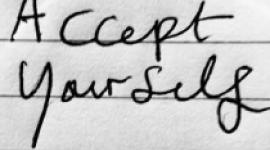 Accept
Yourself